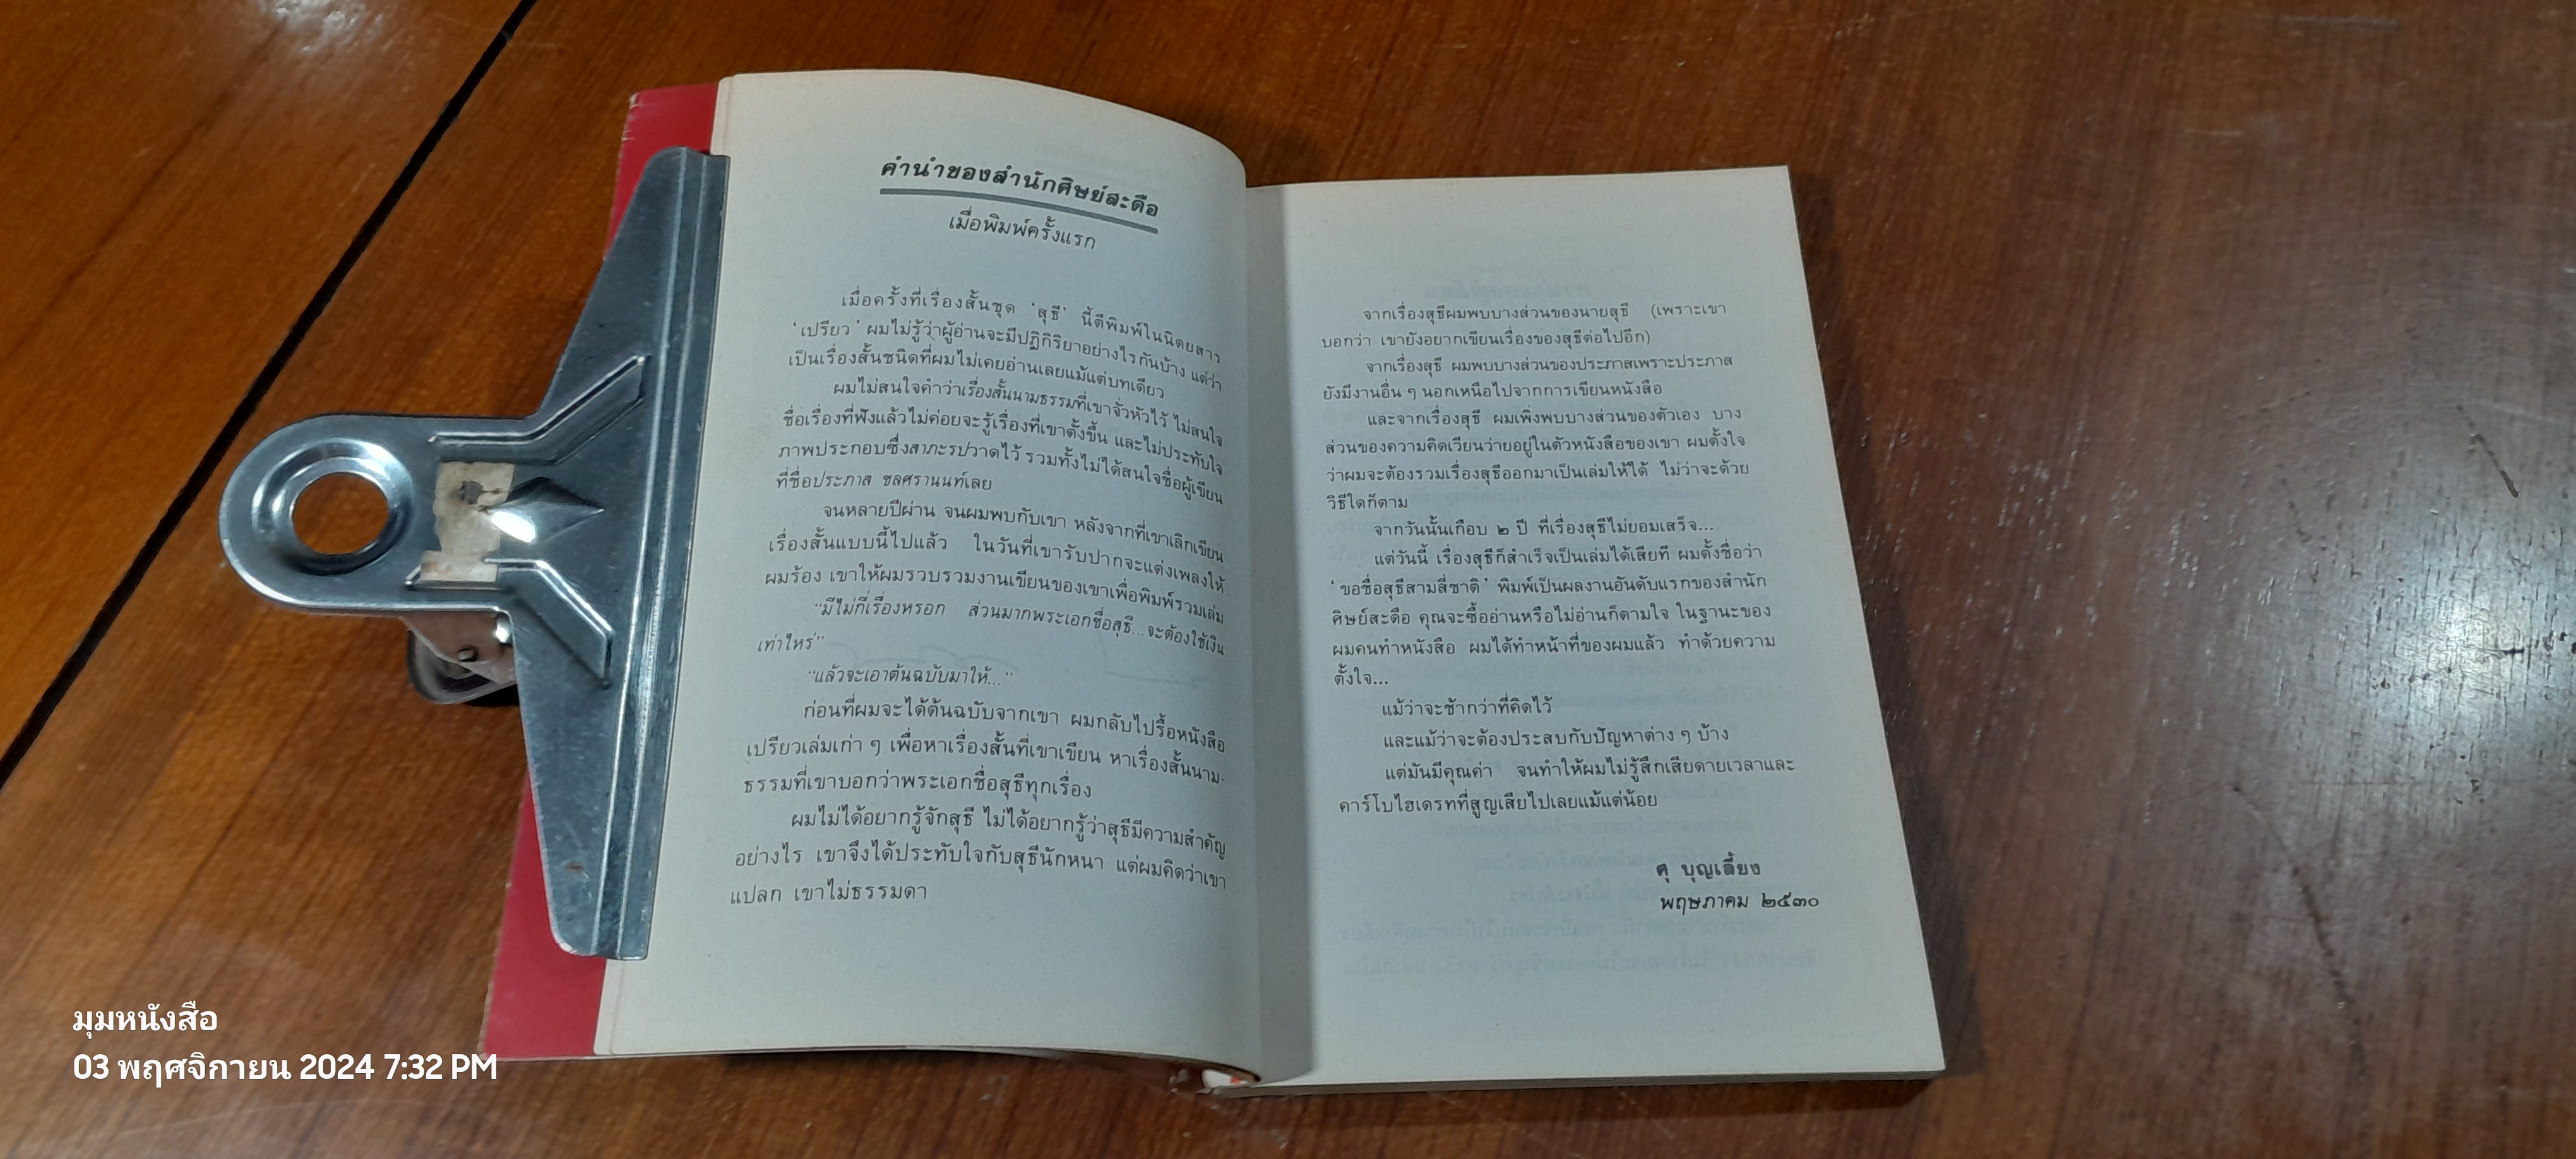 คำนำของสำนักศิษย์สะดือ
เมื่อพิมพ์ครั้งแรก
เมื่อครั้งที่เรื่องสั้นชุด ‘สุธี’ นี้ตีพิมพ์ในนิตยสาร
‘เปรียว’ ผมไม่รู้ว่าผู้อ่านจะมีปฏิกิริยาอย่างไรกันบ้าง แต่ว่า
เป็นเรื่องสั้นชนิดที่ผมไม่เคยอ่านเลยแม้แต่บทเดียว
ผมไม่สนใจคำว่าเรื่องสั้นนามธรรมที่เขาจั่วหัวไว้ ไม่สนใจ
ชื่อเรื่องที่ฟังแล้วไม่ค่อยจะรู้เรื่องที่เขาตั้งขึ้น และไม่ประทับใจ
ภาพประกอบซึ่งสาภะรปวาดไว้ รวมทั้งไม่ได้สนใจชื่อผู้เขียน
ที่ชื่อประภาส ชลศรานนท์เลย
จนหลายปีผ่าน จนผมพบกับเขา หลังจากที่เขาเลิกเขียน
เรื่องสั้นแบบนี้ไปแล้ว ในวันที่เขารับปากจะแต่งเพลงให้
ผมร้อง เขาให้ผมรวบรวมงานเขียนของเขาเพื่อพิมพ์รวมเล่ม
“มีไม่กี่เรื่องหรอก ส่วนมากพระเอกชื่อสุธี...จะต้องใช้เงิน
เท่าไหร่”
“แล้วจะเอาต้นฉบับมาให้...”
ก่อนที่ผมจะได้ต้นฉบับจากเขา ผมกลับไปรื้อหนังสือ
เปรียวเล่มเก่า ๆ เพื่อหาเรื่องสั้นที่เขาเขียน หาเรื่องสั้นนาม-
ธรรมที่เขาบอกว่าพระเอกชื่อสุธีทุกเรื่อง
ผมไม่ได้อยากรู้จักสุธี ไม่ได้อยากรู้ว่าสุธีมีความสำคัญ
อย่างไร เขาจึงได้ประทับใจกับสุธีนักหนา แต่ผมคิดว่าเขา
แปลก เขาไม่ธรรมดา
จากเรื่องสุธีผมพบบางส่วนของนายสุธี (เพราะเขา
บอกว่า เขายังอยากเขียนเรื่องของสุธีต่อไปอีก)
จากเรื่องสุธี ผมพบบางส่วนของประภาสเพราะประภาส
ยังมีงานอื่น ๆ นอกเหนือไปจากการเขียนหนังสือ
และจากเรื่องสุธี ผมเพิ่งพบบางส่วนของตัวเอง บาง
ส่วนของความคิดเวียนว่ายอยู่ในตัวหนังสือของเขา ผมตั้งใจ
ว่าผมจะต้องรวมเรื่องสุธีออกมาเป็นเล่มให้ได้ ไม่ว่าจะด้วย
วิธีใดก็ตาม
จากวันนั้นเกือบ ๒ ปี ที่เรื่องสุธีไม่ยอมเสร็จ...
แต่วันนี้ เรื่องสุธีก็สำเร็จเป็นเล่มได้เสียที ผมตั้งชื่อว่า
‘ขอชื่อสุธีสามสี่ชาติ’ พิมพ์เป็นผลงานอันดับแรกของสำนัก
ศิษย์สะดือ คุณจะซื้ออ่านหรือไม่อ่านก็ตามใจ ในฐานะของ
ผมคนทำหนังสือ ผมได้ทำหน้าที่ของผมแล้ว ทำด้วยความ
ตั้งใจ...
แม้ว่าจะช้ากว่าที่คิดไว้
และแม้ว่าจะต้องประสบกับปัญหาต่าง ๆ บ้าง
แต่มันมีคุณค่า จนทำให้ผมไม่รู้สึกเสียดายเวลาและ
คาร์โบไฮเดรทที่สูญเสียไปเลยแม้แต่น้อย
ศุ บุญเลี้ยง
พฤษภาคม ๒๕๓๐
มุมหนังสือ
03 พฤศจิกายน 2024 7:32 PM